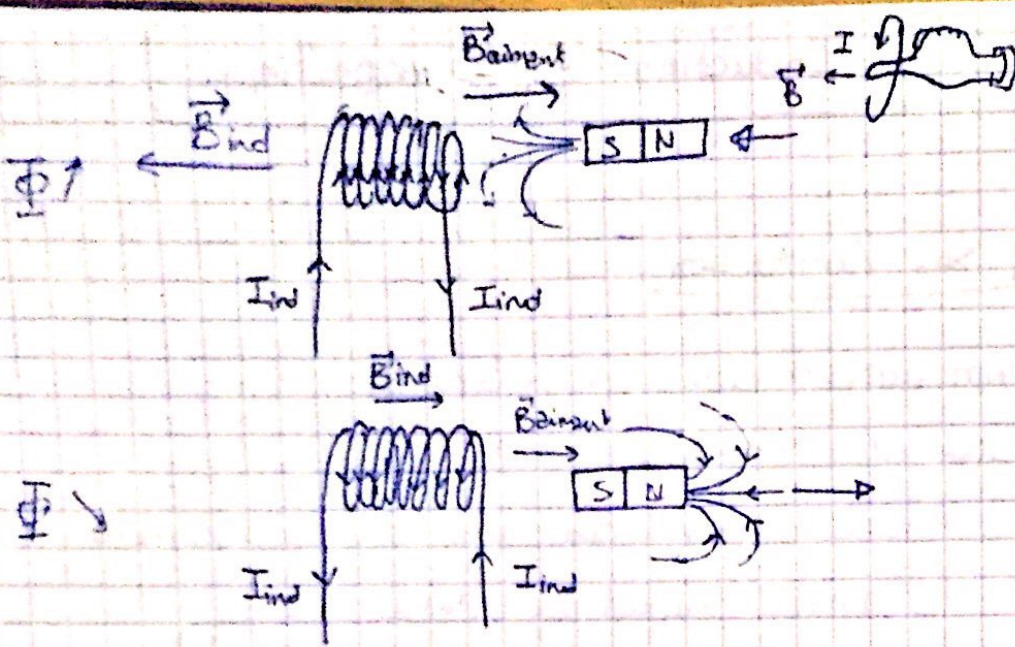 B⃗aiment
I
B⃗
B⃗ind
S N
Φ ↗
Iind
Iind
B⃗ind
B⃗aimant
S N
Φ ↘
Iind
Iind